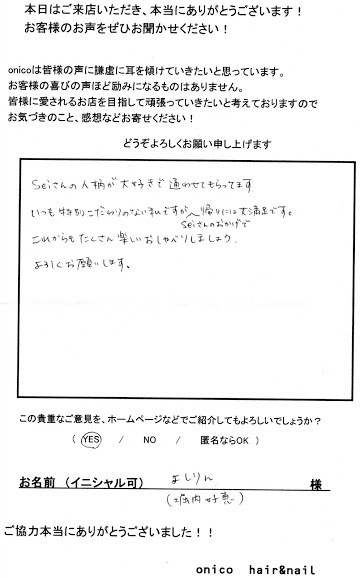 本日はご来店いただき、本当にありがとうございます！
お客様のお声をぜひお聞かせください！
onicoは皆様の声に謙虚に耳を傾けていきたいと思っています。
お客様の喜びの声ほど励みになるものはありません。
皆様に愛されるお店を目指して頑張っていきたいと考えておりますので
お気づきのこと、感想などお寄せください！
どうぞよろしくお願い申し上げます
Seiさんの人柄が大好きで通わせてもらってます
いつも特別こだわりのない私ですが、帰りには大満足です。
Seiさんのおかげで
これからもたくさん楽しいおしゃべりしましょう。
よろしくお願いします。
この貴重なご意見を、ホームページなどでご紹介してもよろしいでしょうか？
（ YES / NO / 匿名ならOK ）
お名前 （イニシャル可） よしりん 様
(堀内好恵)
ご協力本当にありがとうございました！！
onico hair&nail